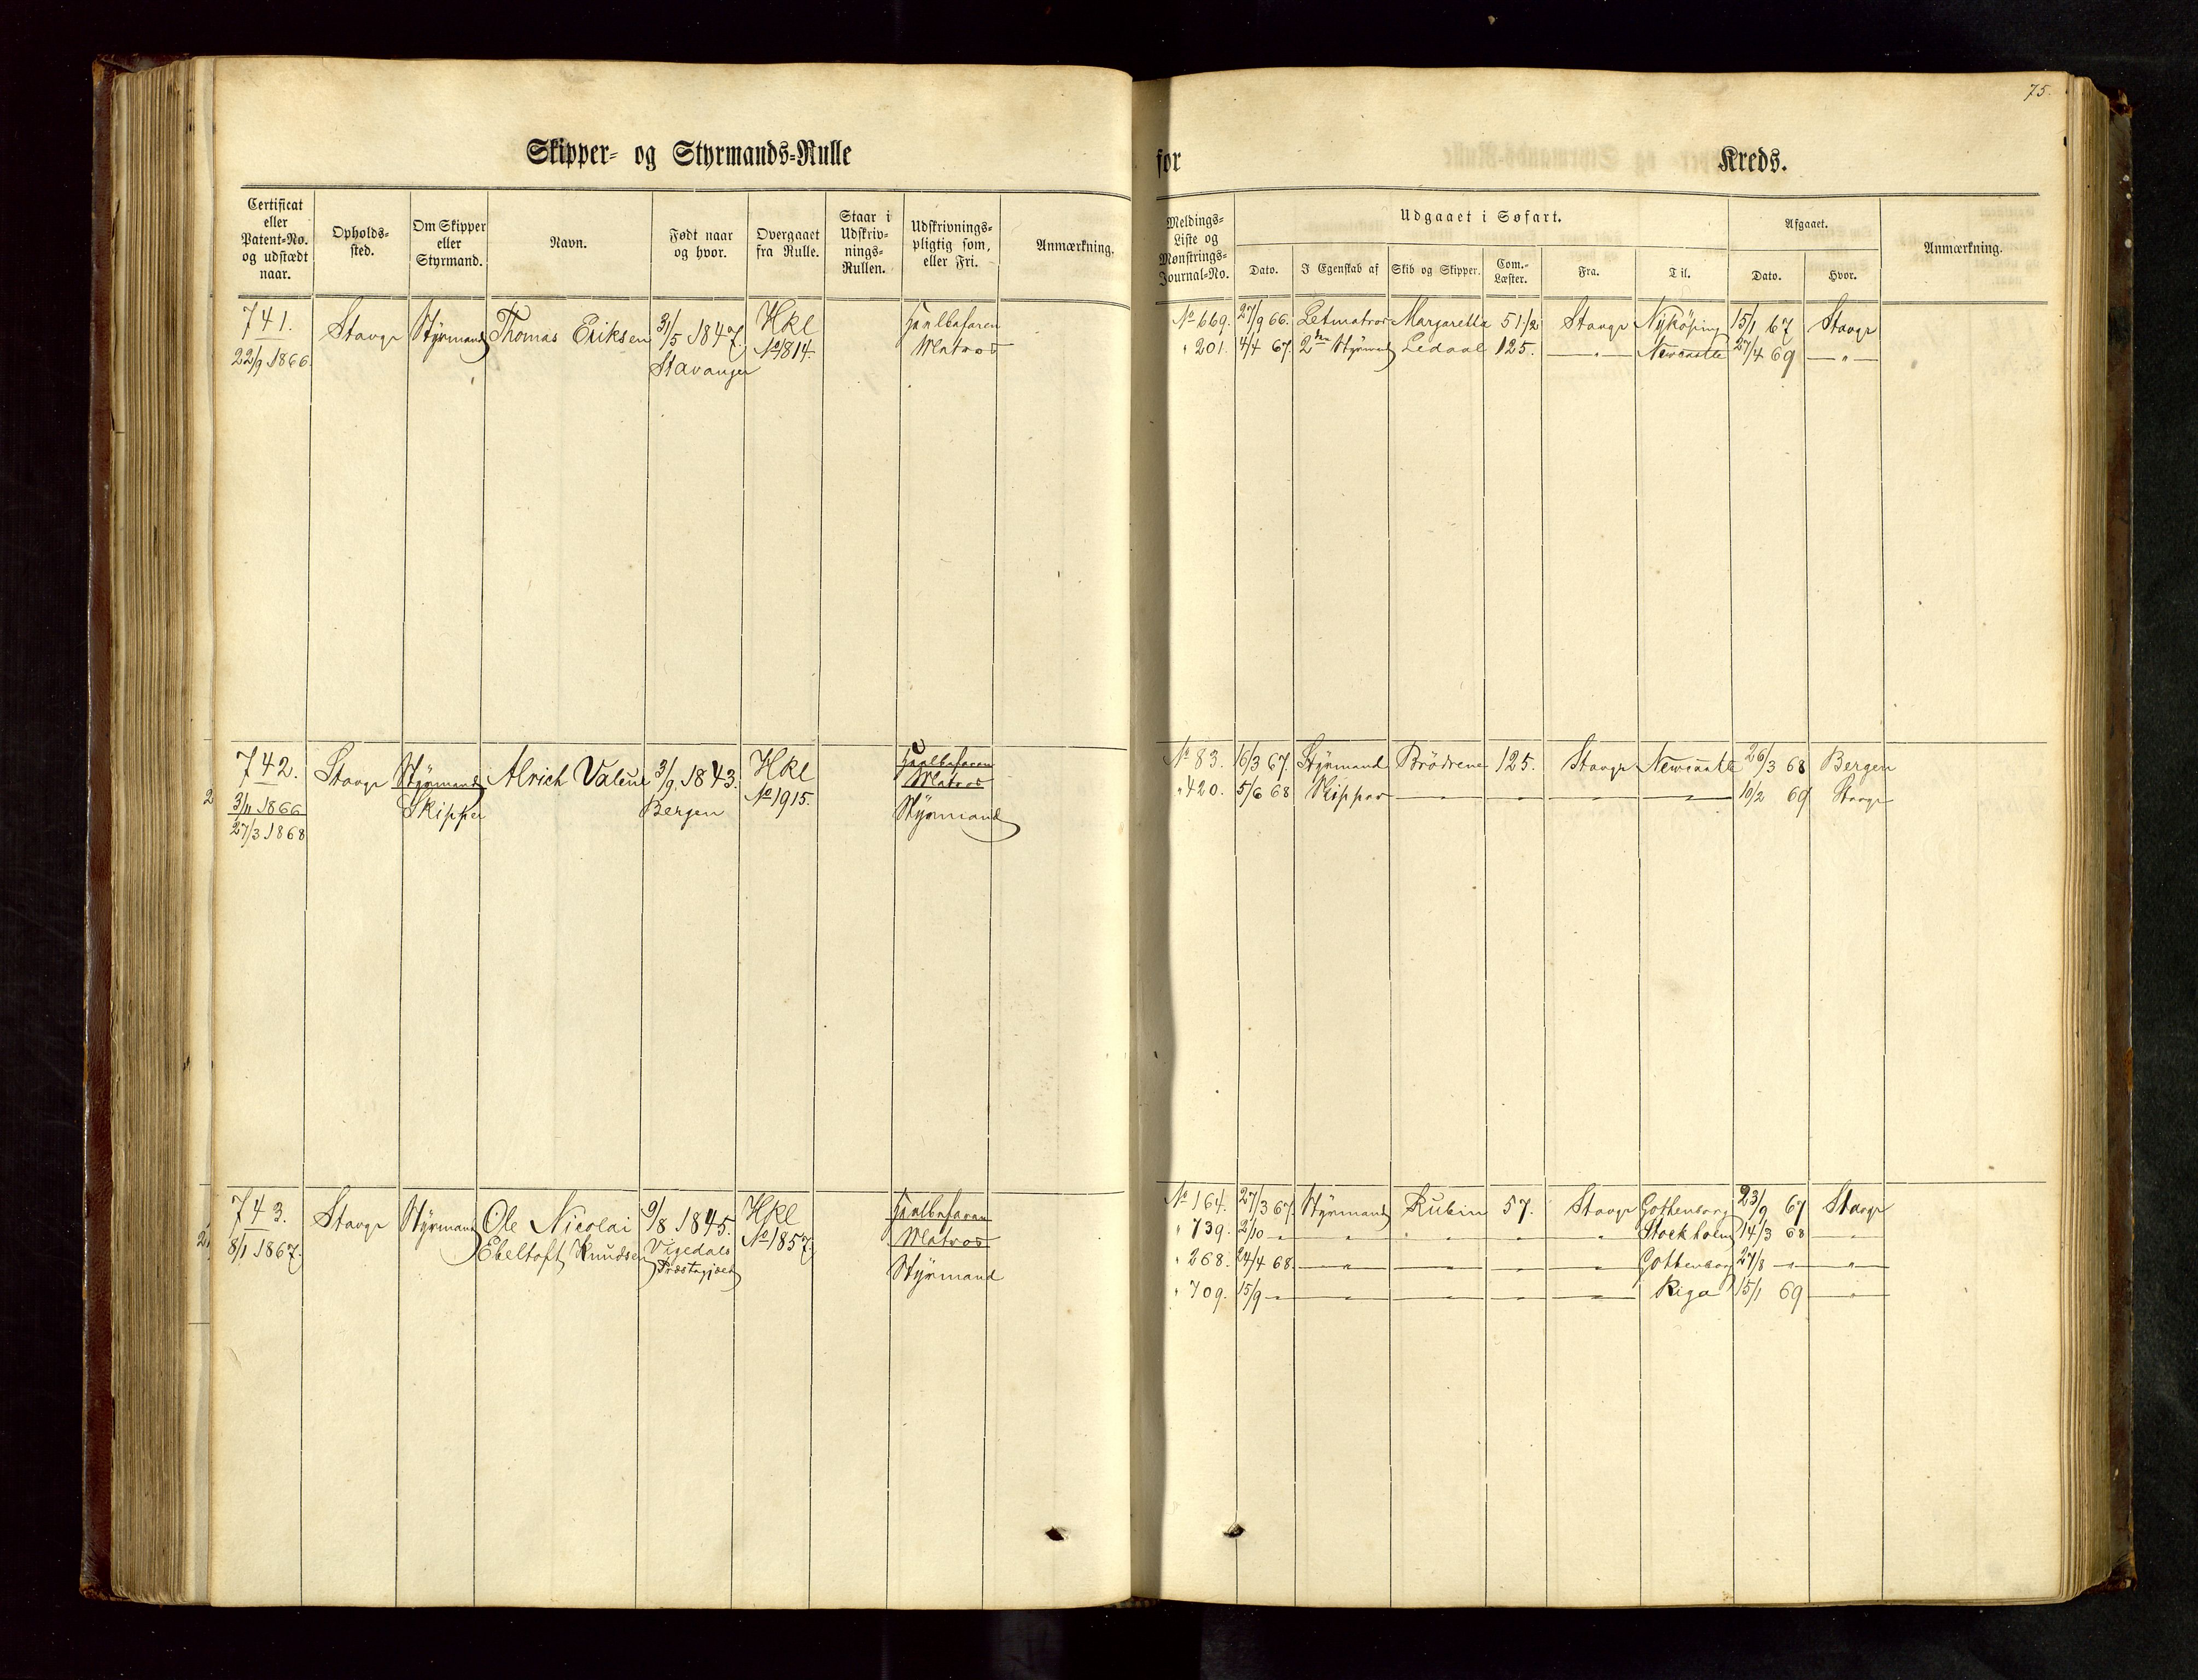 75.
Skipper- og Styrmands-Rulle
for
Kreds.
Certificat eller Patent-No. og udstædt naar.
Opholds-sted.
Om Skipper eller Styrmand.
Navn.
Født naar og hvor.
Overgaaet fra Rulle.
Staar i Udskriv-nings-Rullen.
Udskrivnings-pligtig som, eller Fri.
Anmærkning.
Meldings-Liste og Mønstrings-Journal-No.
Udgaaet i Søfart.
Dato.
I Egenskab af
Skib og Skipper.
Com.-Læster.
Fra.
Til.
Afgaaet.
Dato.
Hvor.
Anmærkning.
741. Stavgr Styrmand Thomas Eriksen 31/5 1847. Hkl Hanlbefaren
22/9 1866. Stavanger No 1814. Matros
No 669. 27/9 66. Letmatros Margaretha 51 1/2 Stavgr Nyköping 15/1 67 Stavgr
" 201. 4/4 67. 2den Styrmd Ledaal 125. — " — Newcastle 27/4 69 — " —
742. Stavgr Styrmand Alrich Valeur 3/9 1843. Hkl
3/11 1866 Skipper Bergen No 1915. Matros
27/3 1868 Styrmand
No 83. 16/3 67. Styrmand Brödrene 125. Stavgr Newcastle 26/3 68 Bergen
" 420. 5/6 68 Skipper — — — — 10/2 69 Stavgr
743. Stavgr Styrmand Ole Nicolai 9/8 1845. Hkl
8/1 1867. Ebeltoft Knudsen Vigedals No 1857. Matros
Præstegjæld Styrmand
No 164. 27/3 67. Styrmand Rubin 57. Stavgr Gothenborg 23/9 67 Stavgr
" 739. 2/10 — " — " — " — " Stockholm 14/3 68 — " —
" 268. 24/4 68. — " — " — " — " Gothenborg 27/8 — " — " —
" 709. 15/9 — " — " — " — " Riga 15/1 69 — " —